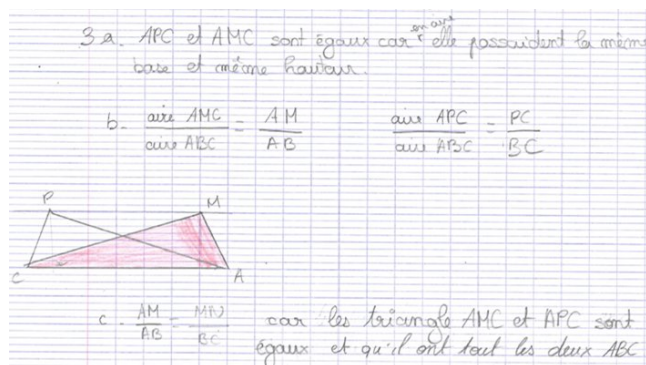 3 a. APC et AMC sont égaux car en aire elle possaident la même
base et même hauteur.
b. aire AMC / aire ABC = AM / AB aire APC / aire ABC = PC / BC
P M
C A
c. AM / AB = / BC car les triangle AMC et APC sont
égaux et qu'il ont tout les deux ABC